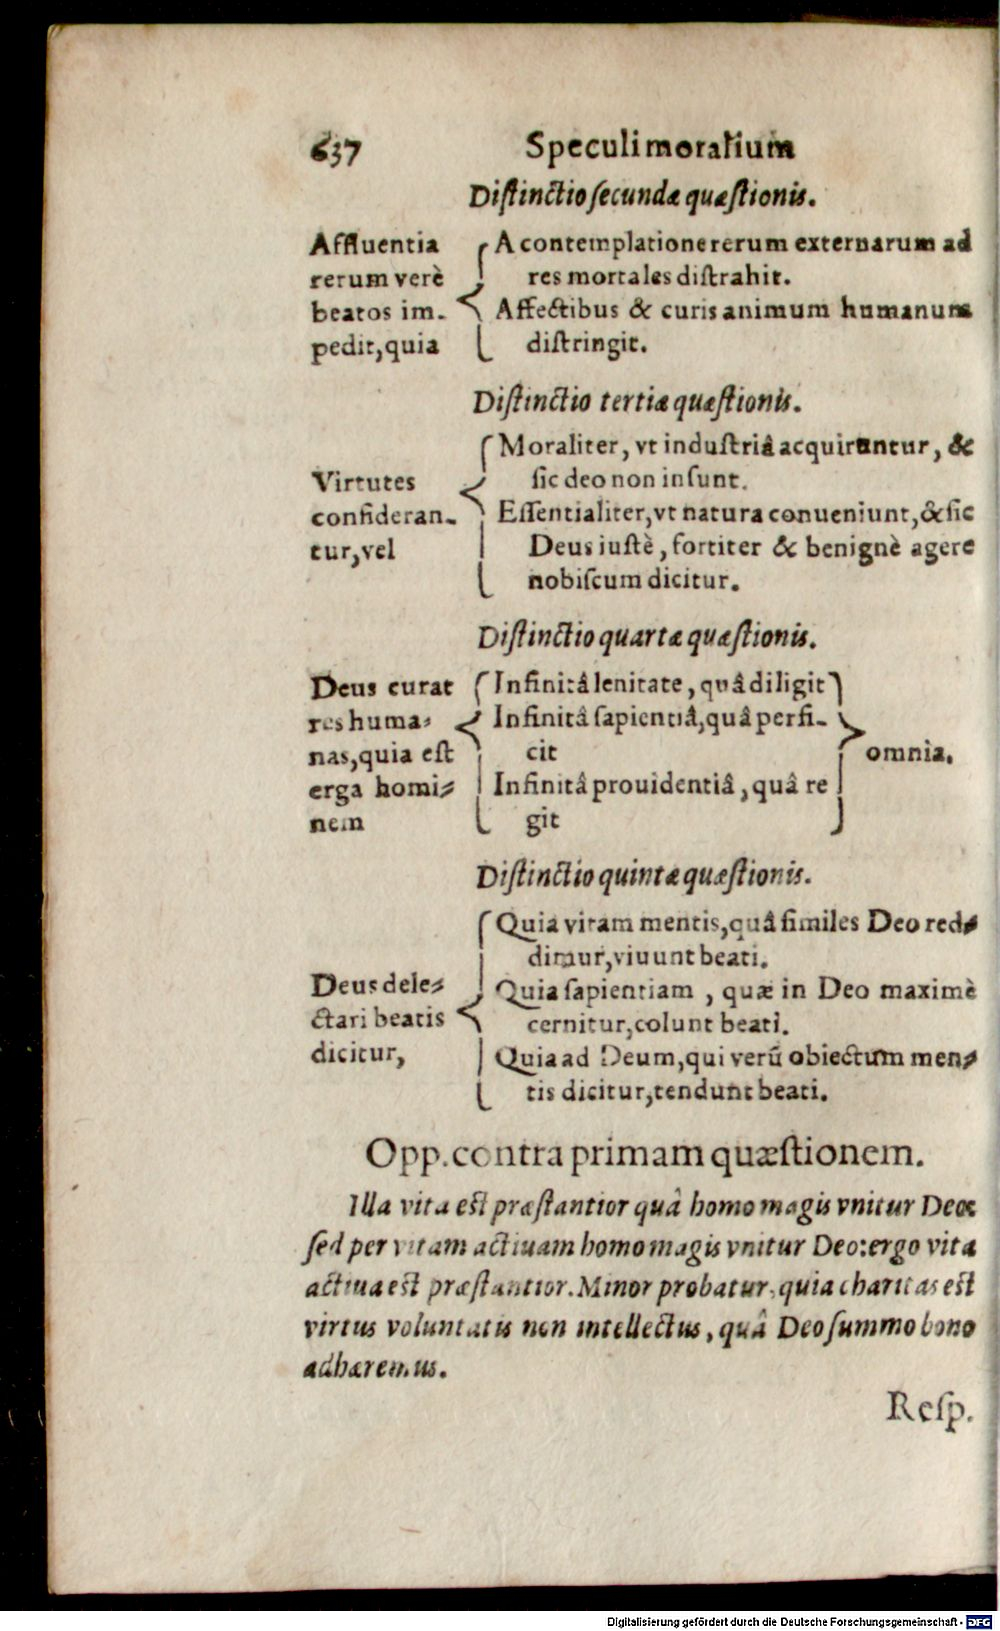 637 Speculi moralium
Distinctio secundæ quæstionis.
Affluentia
rerum verè
beatos im-
pedit, quia
A contemplatione rerum externarum ad
res mortales distrahit.
Affectibus & curis animum humanum
distringit.
Distinctio tertiæ quæstionis.
Virtutes
consideran-
tur, vel
Moraliter, vt industriâ acquiruntur, &
sic deo non insunt.
Essentialiter, vt natura conueniunt, & sic
Deus iustè, fortiter & benignè agere
nobiscum dicitur.
Distinctio quartæ quæstionis.
Deus curat
res huma-
nas, quia est
erga homi-
nem
Infinitâ lenitate, quâ diligit
Infinitâ sapientiâ, quâ perfi-
cit
Infinitâ prouidentiâ, quâ re
git
omnia.
Distinctio quintæ quæstionis.
Deus dele-
ctari beatis
dicitur,
Quia vitam mentis, quâ similes Deo red-
dimur, viuunt beati.
Quia sapientiam, quæ in Deo maximè
cernitur, colunt beati.
Quia ad Deum, qui verũ obiectum men-
tis dicitur, tendunt beati.
Opp. contra primam quæstionem.
Illa vita est præstantior quâ homo magis vnitur Deo:
sed per vitam actiuam homo magis vnitur Deo: ergo vita
actiua est præstantior. Minor probatur, quia charitas est
virtus voluntatis non intellectus, quâ Deo summo bono
adhæremus.
Resp.
Digitalisierung gefördert durch die Deutsche Forschungsgemeinschaft - DFG